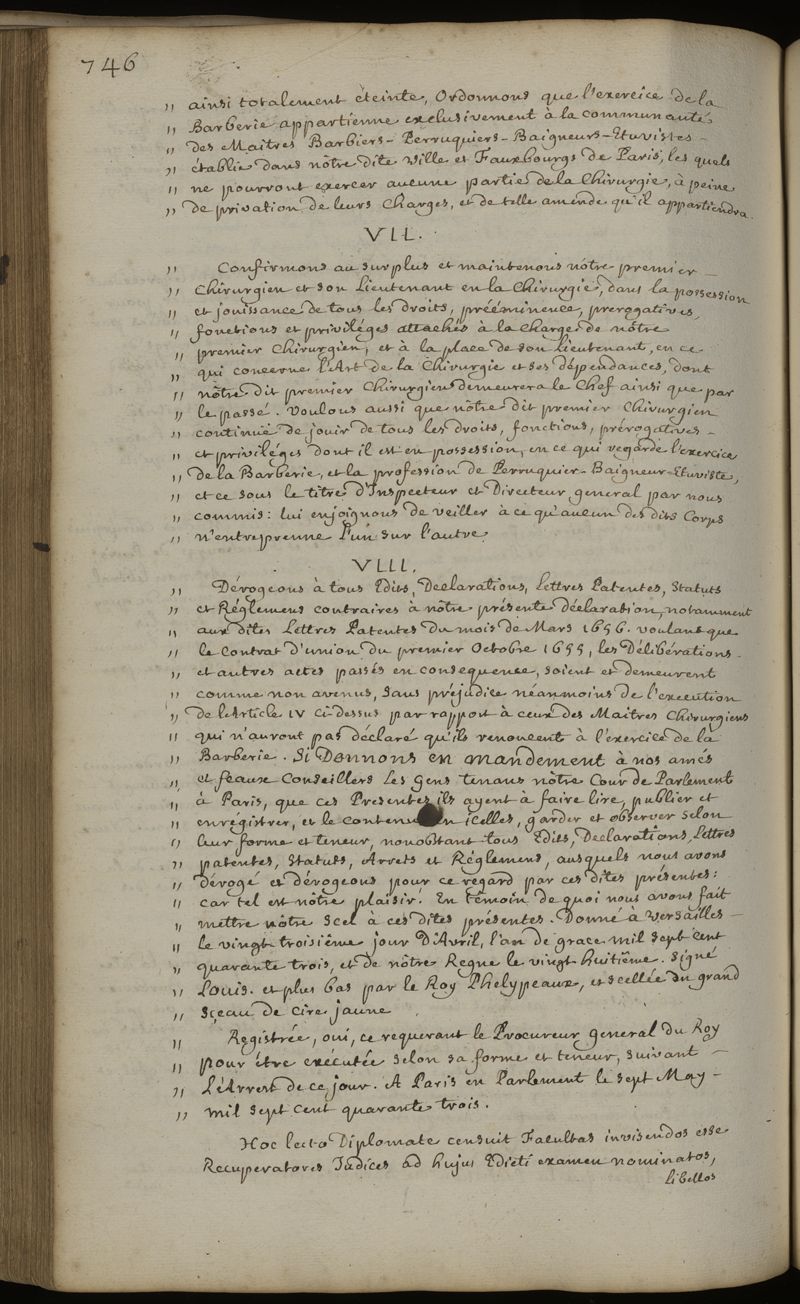 746
" ainsi totalement éteinte, Ordonnons que l'exercice de la
" Barberie appartienne exclusivement à la communauté
" des Maitres Barbiers-Perruquiers-Baigneurs-Etuvistes -
" établie dans nôtre dite Ville et Fauxbourgs de Paris, les quels
" ne pourront exercer aucune partie de la Chirurgie, à peine
" de privation de leurs Charges, et de telle amende qu'il appartiendra.
VII.
" Confirmons au surplus et maintenons nôtre premier -
" Chirurgien et son Lieutenant en la Chirurgie, dans la possession
" et jouissance de tous les droits, prééminence, prerogatives,
" fonctions et priviléges attachés à la Charge de nôtre
" premier Chirurgien, et à la place de son Lieutenant, en ce
" qui concerne l'Art de la Chirurgie et ses dépendances, dont
" nôtre dit premier Chirurgien demeurera le Chef ainsi que par
" le passé. Voulons aussi que nôtre dit premier Chirurgien
" continuë de jouir de tous les droits, fonctions, prérogatives -
" et priviléges dont il est en possession, en ce qui regarde l'exercice
" de la Barberie, et la profession de Perruquier-Baigneur-Etuviste,
" et ce sous le titre d'Inspecteur et Directeur general par nous
" commis: lui enjoignons de veiller à ce qu'aucun des dits Corps
" n'entreprenne l'un sur l'autre.
VIII.
" Dérogeons à tous Edits, Declarations, Lettres Patentes, Statuts
" et Réglemens contraires à nôtre présente déclaration, notamment
" aux dites Lettres Patentes du mois de Mars 1656. voulant que
" le Contrat d'union du premier Octobre 1655, les Délibérations -
" et autres actes passés en consequence, soient et demeurent
" comme non avenus, sans préjudice néanmoins de l'execution
" de l'Article IV ci-dessus par rapport à ceux des Maitres Chirurgiens
" qui n'auront pas déclaré qu'ils renoncent à l'exercice de la
" Barberie. Si Donnons en mandement à nos amés
" et feaux Conseillers Les Gens tenans nôtre Cour de Parlement
" à Paris, que ces Presentes ils ayent à faire lire, publier et
" enregistrer, et le contenu en icelles, garder et observer selon
" leur forme et teneur, nonobstant tous Edits, Declarations, Lettres
" patentes, Statuts, Arrets et Réglemens, ausquels nous avons
" dérogé et dérogeons pour ce regard par ces dites présentes:
" car tel est nôtre plaisir. En témoin de quoi nous avons fait
" mettre nôtre Scel à ces dites présentes. Donné à Versailles -
" le vingt troisiéme jour D'Avril, l'an de grace mil sept cent
" quarante trois, et de nôtre Regne le vingt huitiéme. Signé
" Louis. et plus bas par le Roy Phelypeaux, et scellée du grand
" sçeau de cire jaune
" Registrée, oui, ce requerant le Procureur general du Roy
" pour étre exécutée selon sa forme et teneur, suivant -
" L'Arrest de ce jour. A Paris en Parlement le sept May -
" mil sept cent quarante trois.
Hoc lecto Diplomate censuit Facultas invisendos esse
Recuperatores Judices ad hujus Edicti examen nominatos,
libellos